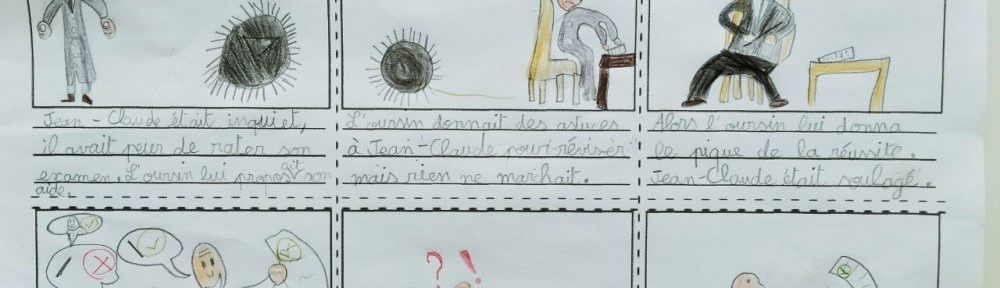 Jean-Claude était inquiet,
il avait peur de rater son
examen. L'oursin lui proposait son
aide.
L'oursin donnait des astuces
à Jean-Claude pour réviser
mais rien ne marchait.
Alors l'oursin lui donna
le pique de la réussite.
Jean-Claude était soulagé.
? !